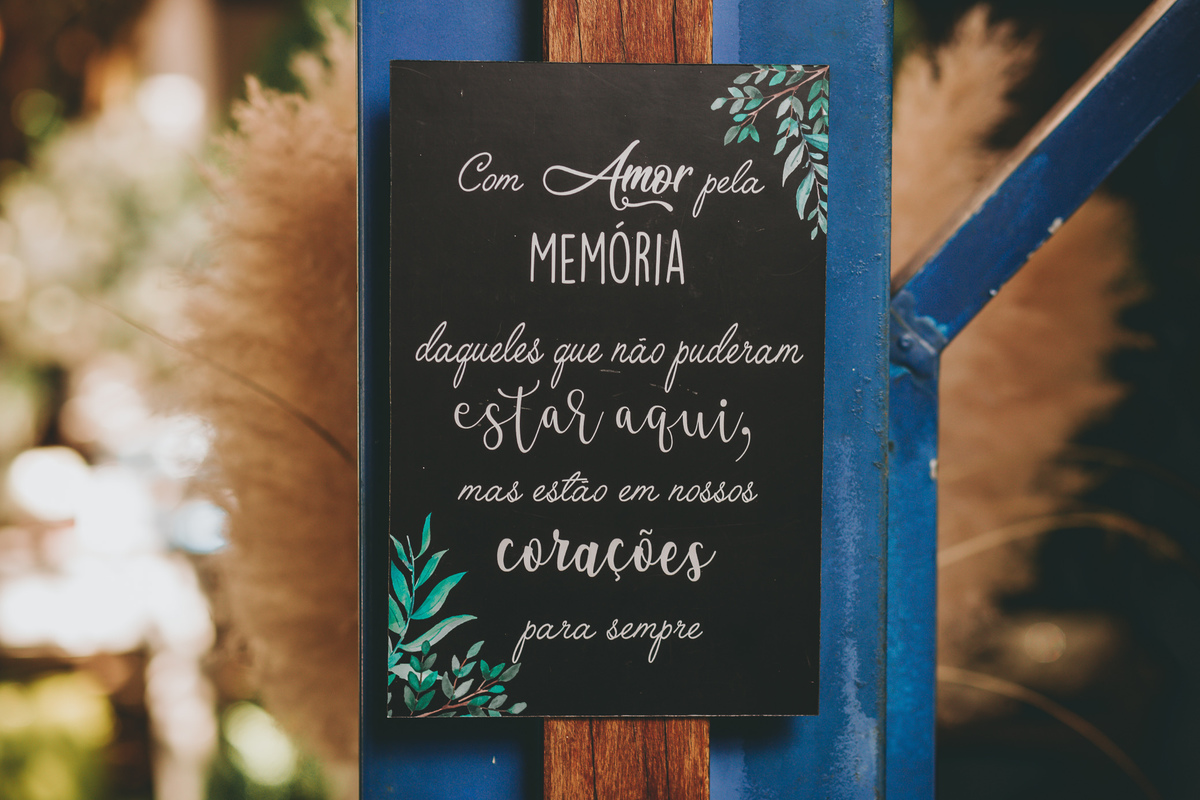 Com Amor pela
MEMÓRIA
daqueles que não puderam
estar aqui,
mas estão em nossos
corações
para sempre